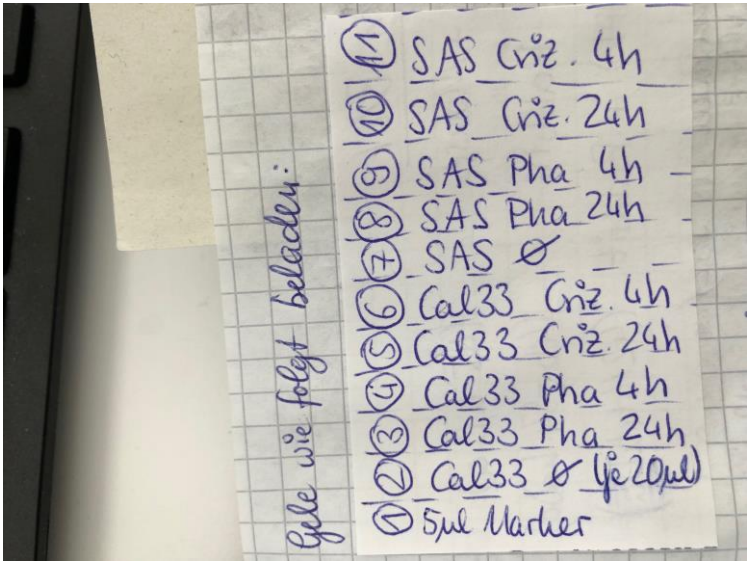 Gele wie folgt beladen:
⑪ SAS Criz. 4h
⑩ SAS Criz. 24h
⑨ SAS Pha 4h
⑧ SAS Pha 24h
⑦ SAS Ø
⑥ Cal33 Criz. 4h
⑤ Cal33 Criz. 24h
④ Cal33 Pha 4h
③ Cal33 Pha 24h
② Cal33 Ø (je 20µl)
① 5µl Marker